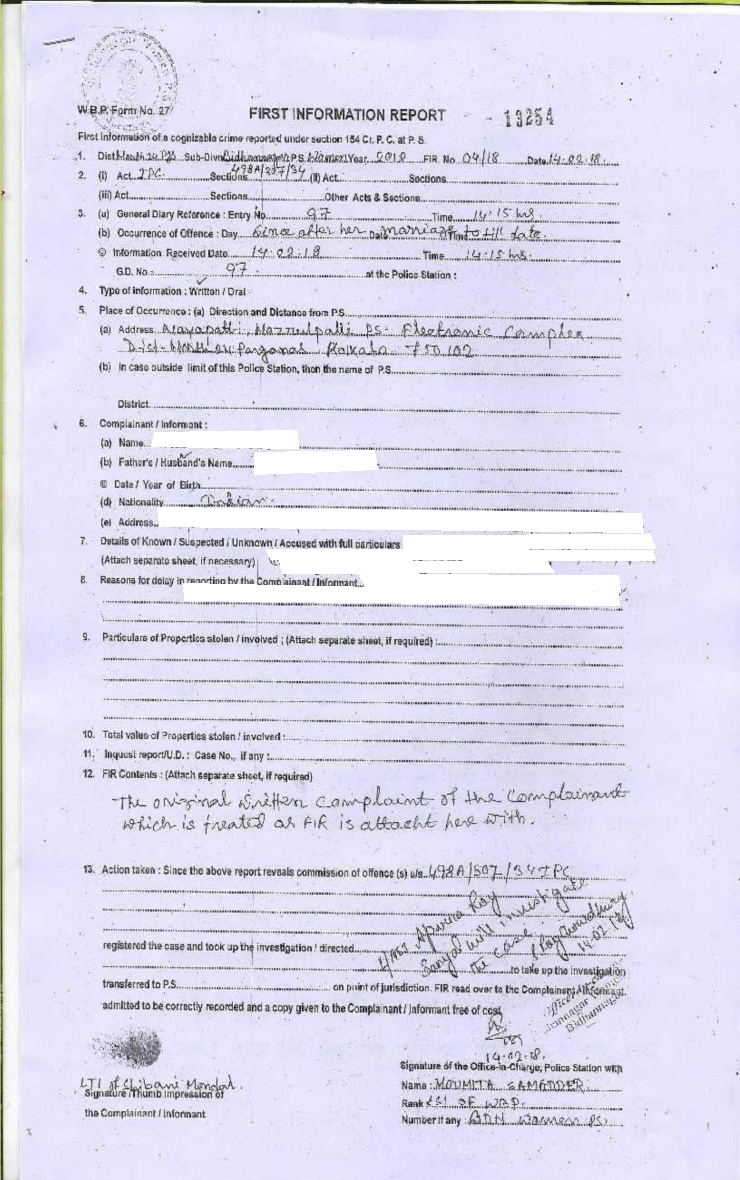 W.B.P. Form No. 27
FIRST INFORMATION REPORT
- 13254
First Information of a cognizable crime reported under section 154 Cr. P. C. at P. S.
1. Dist North 24 Pgs Sub-Divn Bidhannagar P.S. Women Year 2018 FIR No 04/18 Date 14-02-18.
2. (i) Act IPC Sections 498A/307/34 (ii) Act Sections
(iii) Act Sections Other Acts & Sections
3. (a) General Diary Reference : Entry No 97 Time 14-15 hrs.
(b) Occurrence of Offence : Day Since after her Date marriage to till date.
© Information Received Date 14-02-18 Time 14:15 hrs.
G.D. No.: 97 at the Police Station :
4. Type of information : Written / Oral
5. Place of Occurrence : (a) Direction and Distance from P.S.
(a) Address PS- Electronic Complex
Dist- North 24 Parganas, Kolkata 700102
(b) In case outside limit of this Police Station, then the name of P.S.
District
6. Complainant / Informant :
(a) Name
(b) Father's / Husband's Name
© Date / Year of Birth
(d) Nationality Indian.
(e) Address
7. Details of Known / Suspected / Unknown / Accused with full particulars
(Attach separate sheet, if necessary)
8. Reasons for delay in reporting by the Complainant / Informant
9. Particulars of Properties stolen / involved ; (Attach separate sheet, if required) :
10. Total value of Properties stolen / involved :
11. Inquest report/U.D. : Case No., if any :
12. FIR Contents : (Attach separate sheet, if required)
The original written complaint of the complainant
which is treated as FIR is attacht here with.
13. Action taken : Since the above report reveals commission of offence (s) u/s 498A/307/34 IPC
Roy
Sanyal will investigate
the case.
14.02.18
registered the case and took up the investigation / directed
to take up the investigation
transferred to P.S. on point of jurisdiction. FIR read over to the Complainant / Informant,
admitted to be correctly recorded and a copy given to the Complainant / Informant free of cost
Bidhannagar
14-02-18.
LTI of Shibani Mondal.
Signature / Thumb Impression of
the Complainant / Informant
Signature of the Office-in-Charge, Police Station with
Name : MOUMITA SAMADDER.
Rank LSI OF WBP.
Number if any : BDN Women PS.